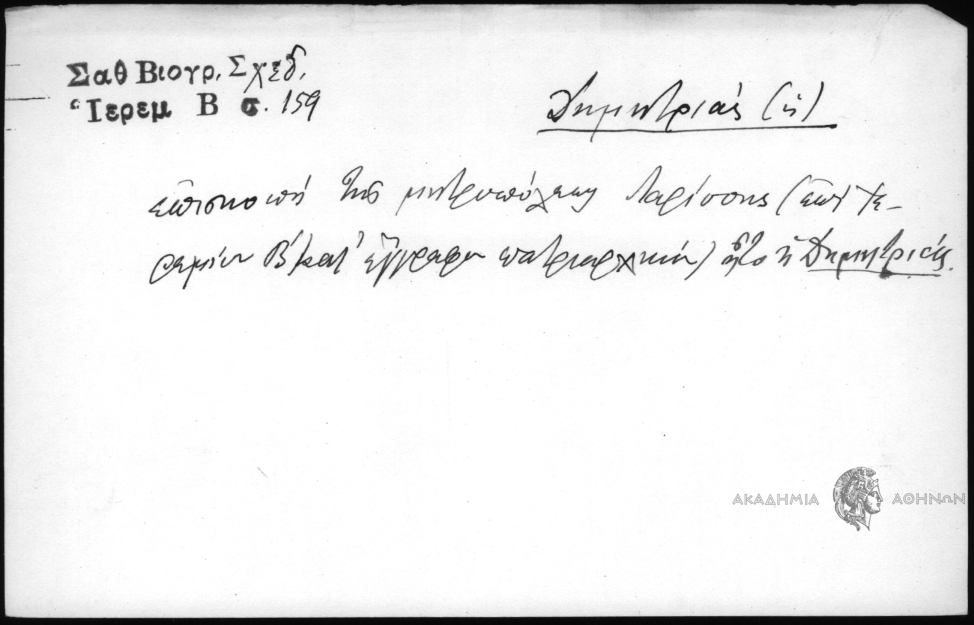 Σαθ Βιογρ. Σχεδ.
Ἱερεμ Β σ. 159
Δημητριάς (ἡ)
ἐπισκοπή τῆς μητροπόλεως Λαρίσσης (ἐπί Ἱε-
ρεμίου Β΄ κατ' ἔγγραφα πατριαρχικά) ἦτο ἡ Δημητριάς.
ΑΚΑΔΗΜΙΑ ΑΘΗΝΩΝ